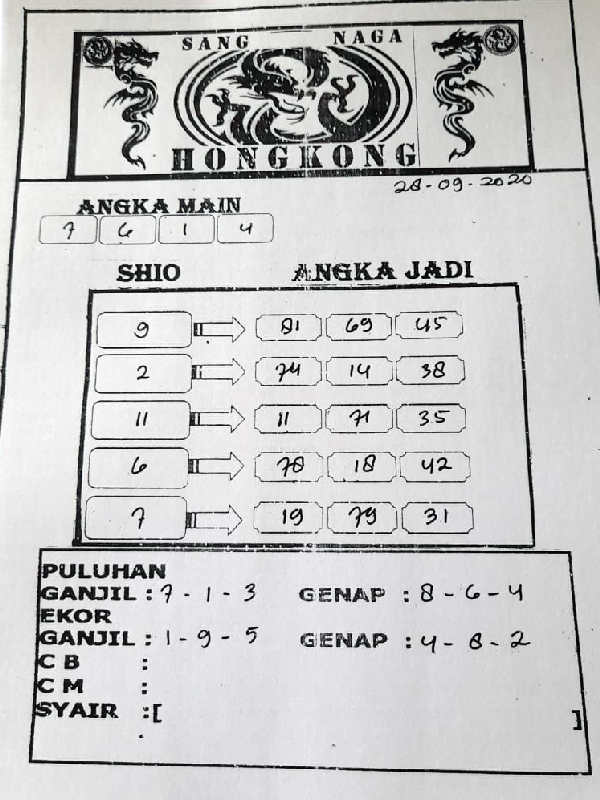 SANG NAGA
HONGKONG
28-09-2020
ANGKA MAIN
7 6 1 4
SHIO ANGKA JADI
9 81 69 45
2 74 14 38
11 11 71 35
6 78 18 42
7 19 79 31
PULUHAN
GANJIL : 7 - 1 - 3 GENAP : 8 - 6 - 4
EKOR
GANJIL : 1 - 9 - 5 GENAP : 4 - 8 - 2
C B :
C M :
SYAIR :[ ]